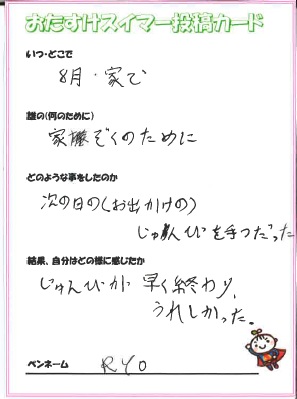 おたすけスイマー投稿カード
いつ・どこで
8月・家で
誰の(何のために)
家族ぞくのために
どのような事をしたのか
次の日の(お出かけの)
じゅんびを手つだった
結果、自分はどの様に感じたか
じゅんびが早く終わり、
うれしかった。
ペンネーム RYO